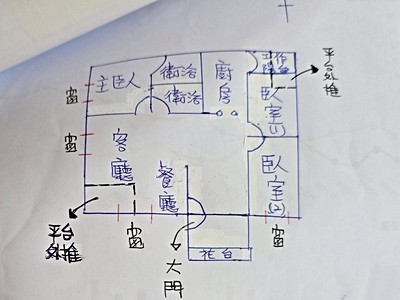 主臥
衛浴
衛浴
廚房
工作
平台外推
臥室(1)
窗
窗
客廳
餐廳
臥室(2)
平台外推
窗
大門
花台
窗